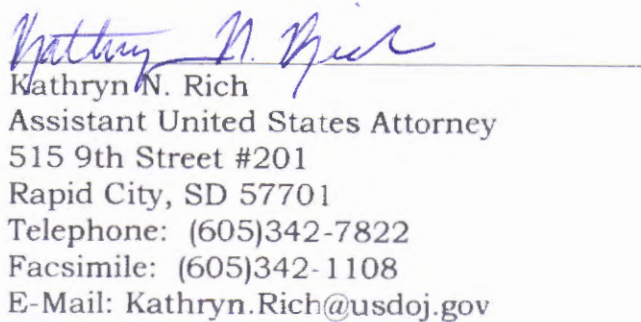 Kathryn N. Rich
Kathryn N. Rich
Assistant United States Attorney
515 9th Street #201
Rapid City, SD 57701
Telephone: (605)342-7822
Facsimile: (605)342-1108
E-Mail: Kathryn.Rich@usdoj.gov